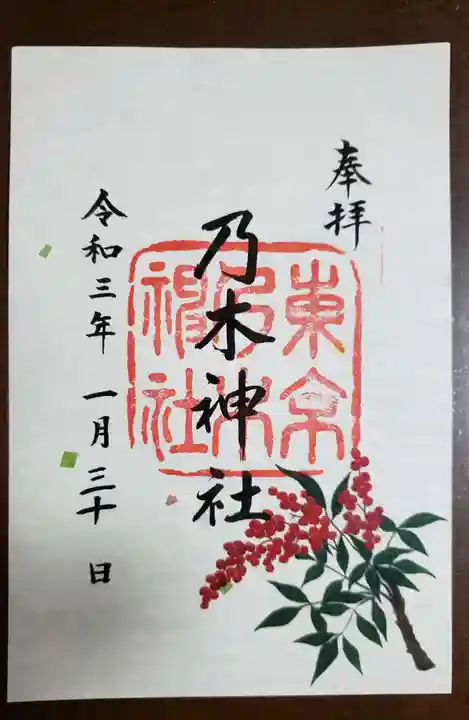 奉拝
東京
乃木
神社
乃木神社
令和三年 一月三十日